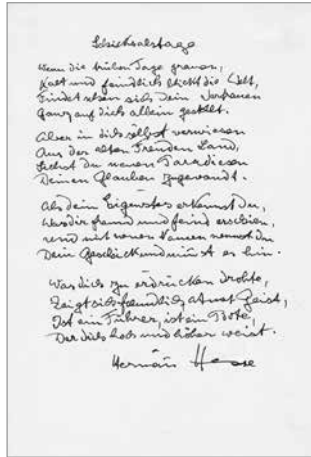 Schicksalstage
Wenn die trüben Tage grauen,
Kalt und feindlich blickt die Welt,
Findet scheu sich dein Vertrauen
Ganz auf dich allein gestellt.
Aber in dich selbst verwiesen
Aus der alten Freuden Land,
Siehst du neuen Paradiesen
Deinen Glauben zugewandt.
Als dein Eigenstes erkennst du,
Was dir fremd und feind erschien,
Und mit neuen Namen nennst du
Dein Geschick und nimmst es hin.
Was dich zu erdrücken drohte,
Zeigt sich freundlich, atmet Geist,
Ist ein Führer, ist ein Bote,
Der dich hoch und höher weist.
Hermann Hesse